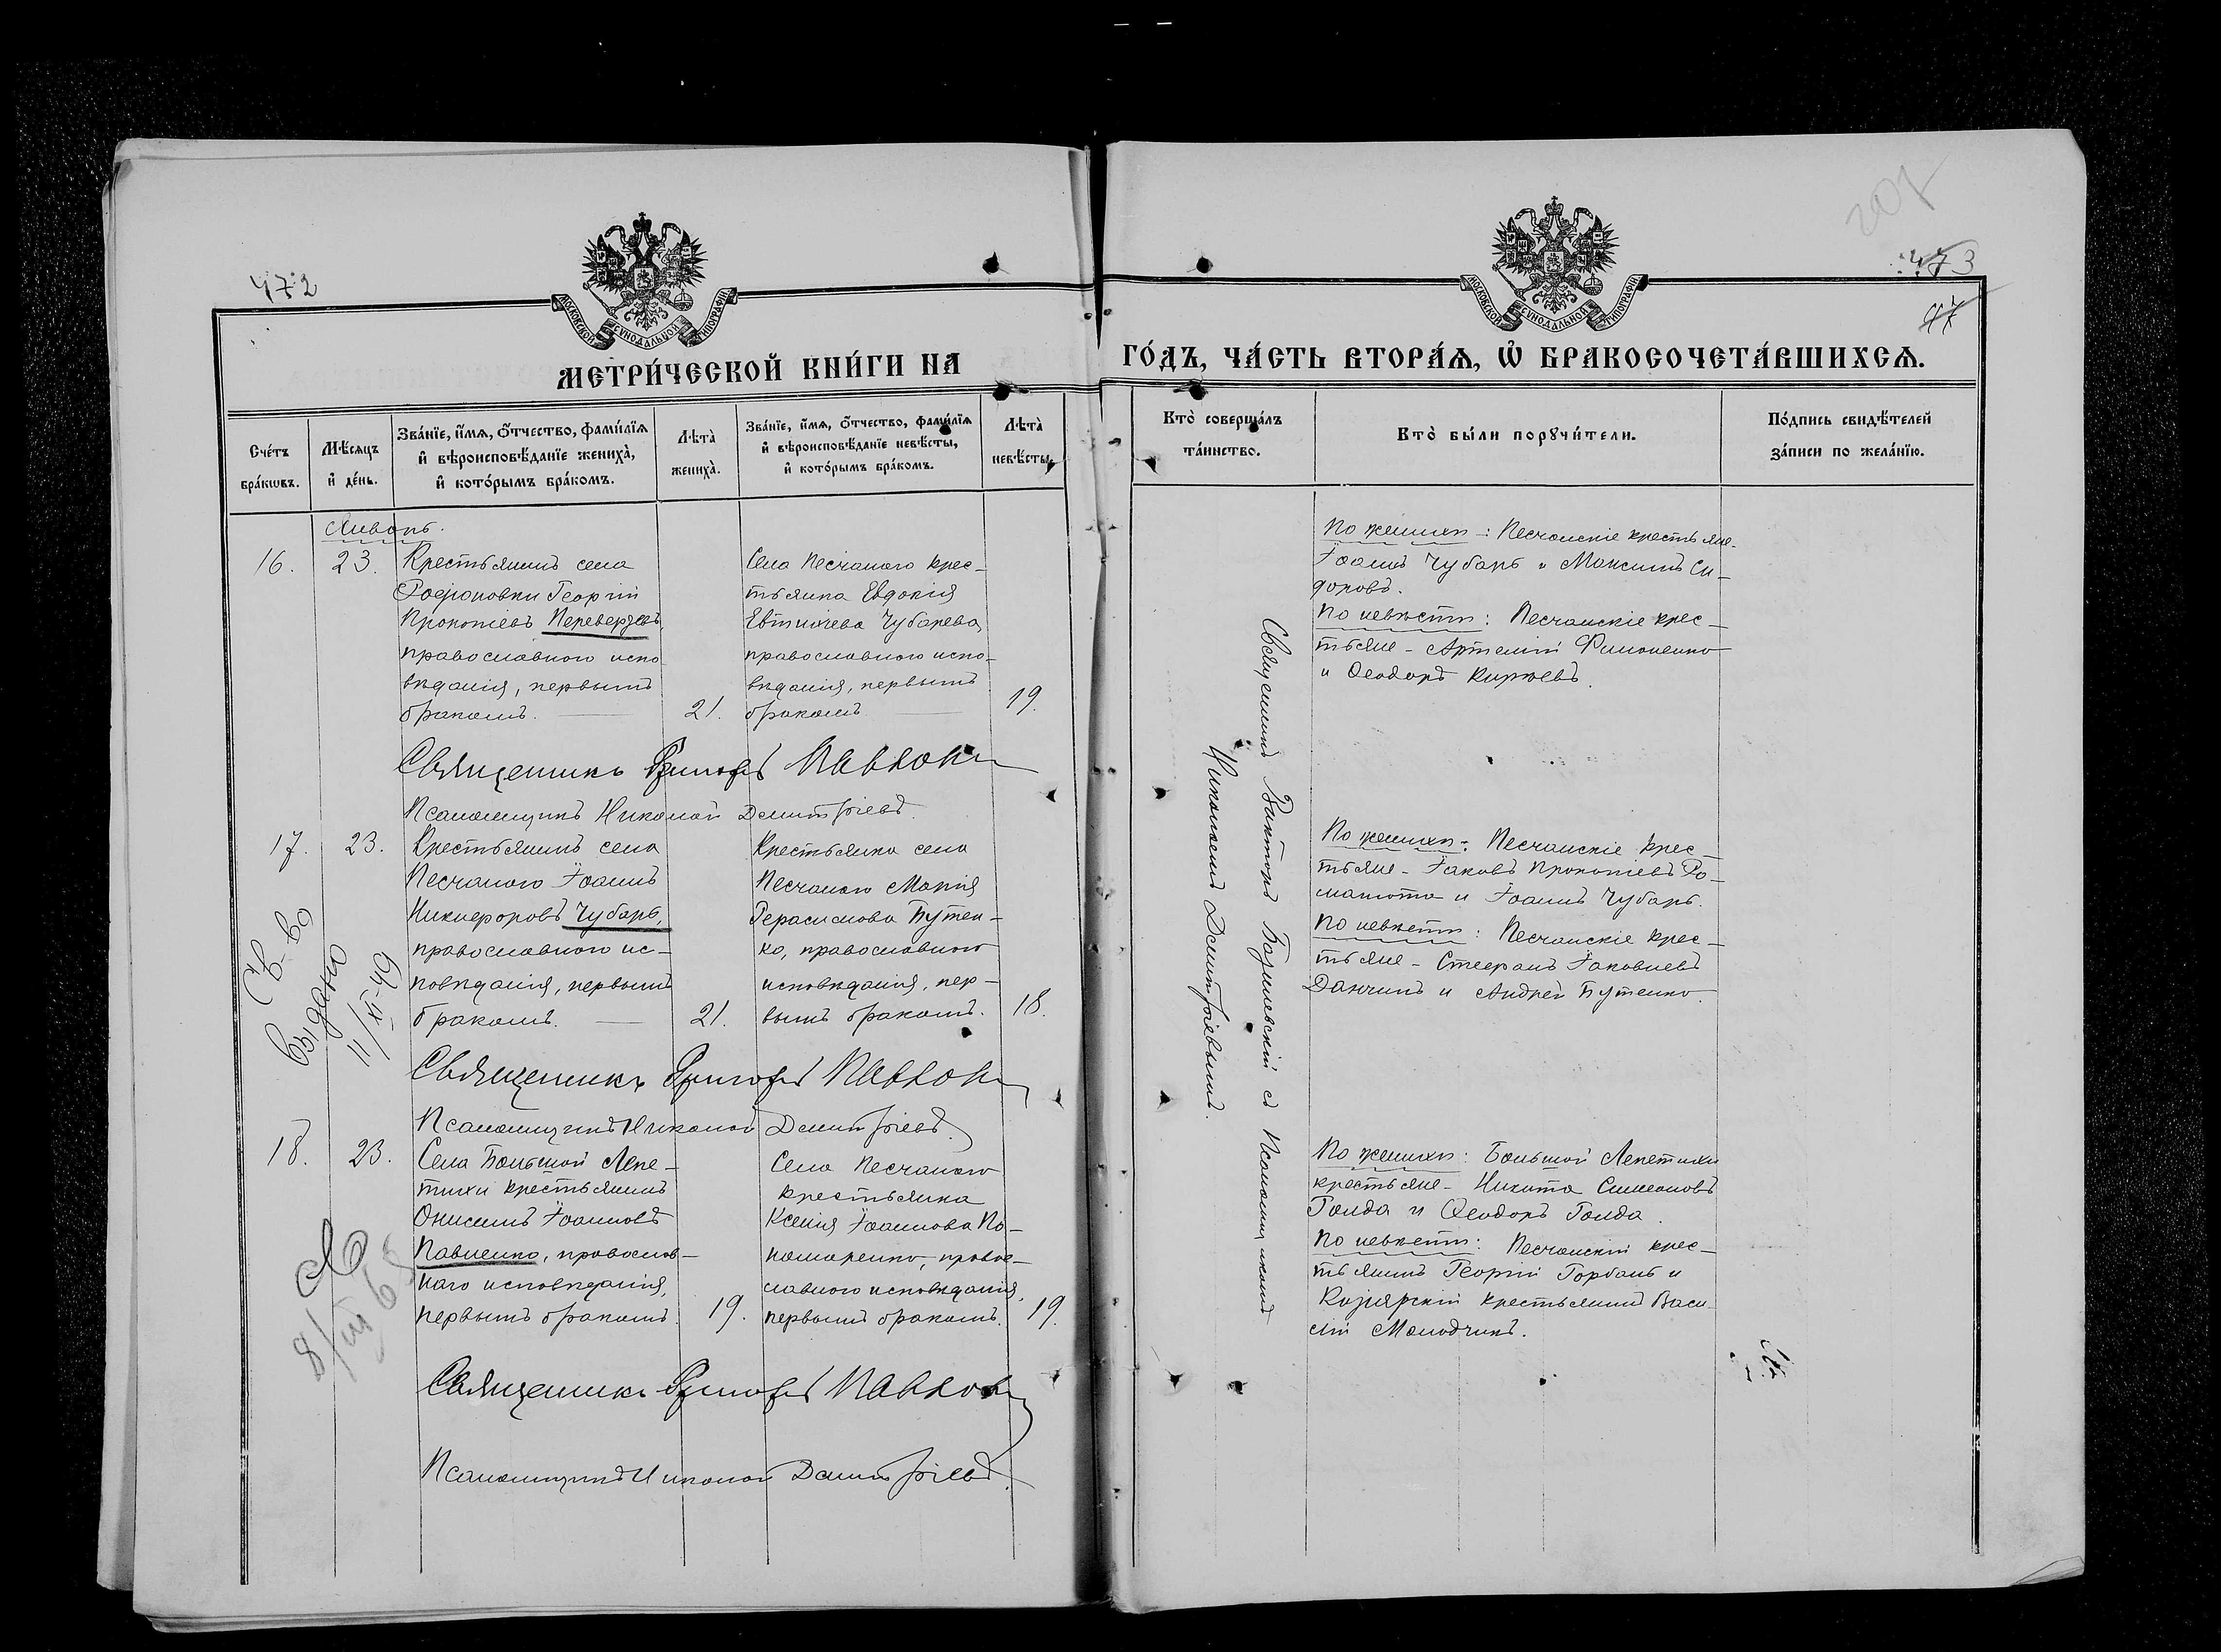 472
МОСКОВСКОЙ СѴНОДАЛЬНОЙ ТИПОГРАФІИ
МЕТРИ́ЧЕСКОЙ КНИ́ГИ НА
Сче́тъ бра́кѡвъ.
Мѣ́сяцъ и҆ де́нь.
Зва́нїе, и҆́мѧ, ѻ҆́тчество, фами́лїѧ и҆ вѣроисповѣ́данїе жениха̀, и҆ кото́рымъ бра́комъ.
Лѣта̀ жениха̀.
Зва́нїе, и҆́мѧ, ѻ҆́тчество, фами́лїѧ и҆ вѣроисповѣ́данїе невѣ́сты, и҆ кото́рымъ бра́комъ.
Лѣта̀ невѣ́сты.
Январь.
16.
23.
Крестьянинъ села
Родіоновки Георгій
Прокопіевъ Переверзевъ,
православнаго испо-
вѣданія, первымъ
бракомъ.
21.
Села Песчанаго крес-
тьянка Евдокія
Евтихіева Чубарева,
православнаго испо-
вѣданія, первымъ
бракомъ
19.
Священникъ Григорій
Псаломщикъ Николай Димитріевъ.
17.
23.
Крестьянинъ села
Песчанаго Іоаннъ
Никифоровъ Чубарь,
православнаго ис-
повѣданія, первымъ
бракомъ.
21.
Крестьянка села
Песчанаго Марія
Герасимова Бутен-
ко, православнаго
исповѣданія, пер-
вымъ бракомъ.
18.
Св-во
выдано
11/XI-49
Священникъ Григорій
Псаломщикъ Николай Димитріевъ.
18.
23.
Села Большой Лепе-
тихи крестьянинъ
Онисимъ Іоанновъ
Павленко, православ-
наго исповѣданія,
первымъ бракомъ.
19.
Села Песчанаго
крестьянка
Ксенія Іоаннова По-
номаренко, право-
славнаго исповѣданія,
первымъ бракомъ.
19.
Священникъ Григорій
Псаломщикъ Николай Димитріевъ.
473
МОСКОВСКОЙ СѴНОДАЛЬНОЙ ТИПОГРАФІИ
ГО́ДЪ, ЧА́СТЬ ВТОРА́Ѧ, Ѡ҆ БРАКОСОЧЕТА́ВШИХСѦ.
Кто̀ соверша́лъ та́инство.
Кто̀ бы́ли порꙋчи́тели.
По́дпись свидѣ́телей за́писи по жела́нїю.
Священникъ Викторъ Базилевскій съ Псаломщикомъ
Николаемъ Димитріевымъ.
По женихѣ: Песчанскіе крестьяне-
Іоаннъ Чубарь и Максимъ Си-
доровъ.
По невѣстѣ: Песчанскіе крес-
тьяне - Артемій Филоненко
и Ѳеодоръ Киріевъ.
По женихѣ: Песчанскіе крес-
тьяне - Іаковъ Прокопіевъ Ро-
манота и Іоаннъ Чубарь.
По невѣстѣ: Песчанскіе крес-
тьяне - Стефанъ Іаковлевъ
Данчинъ и Андрей Бутенко.
По женихѣ: Большой Лепетихи
крестьяне - Никита Симеоновъ
Голда и Ѳеодоръ Голда.
По невѣстѣ: Песчанскій крес-
тьянинъ Георгій Горбань и
крестьянинъ Васи-
лій Молодчикъ.